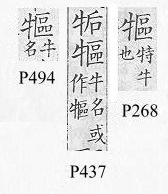 𤛐牛名
P494
㸸𤛐牛名或作𤛐
P437
𤛐特牛也
P268